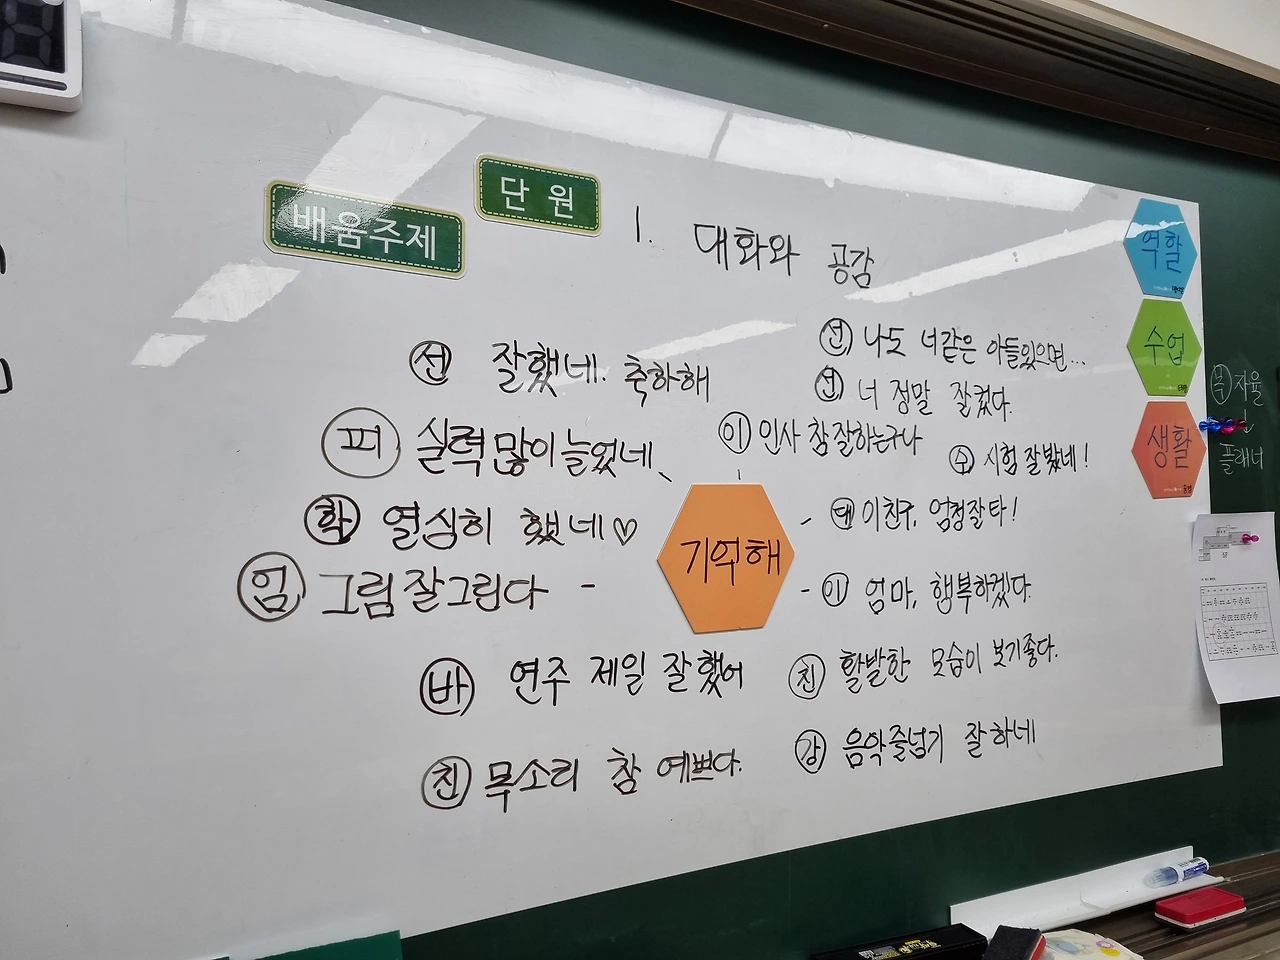 단원
배움주제
1. 대화와 공감
역할
수업
생활
선 잘했네. 축하해
피 실력 많이 늘었네
학 열심히 했네♡
엄 그림 잘 그린다
바 연주 제일 잘했어
친 목소리 참 예쁘다.
기억해
선 나도 너같은 아들있으면...
선 너 정말 잘컸다.
이 인사 참 잘하는구나
수 시험 잘봤네!
태 이친구, 엄청잘타!
이 엄마, 행복하겠다.
친 활발한 모습이 보기좋다.
강 음악줄넘기 잘하네
자율
플래너